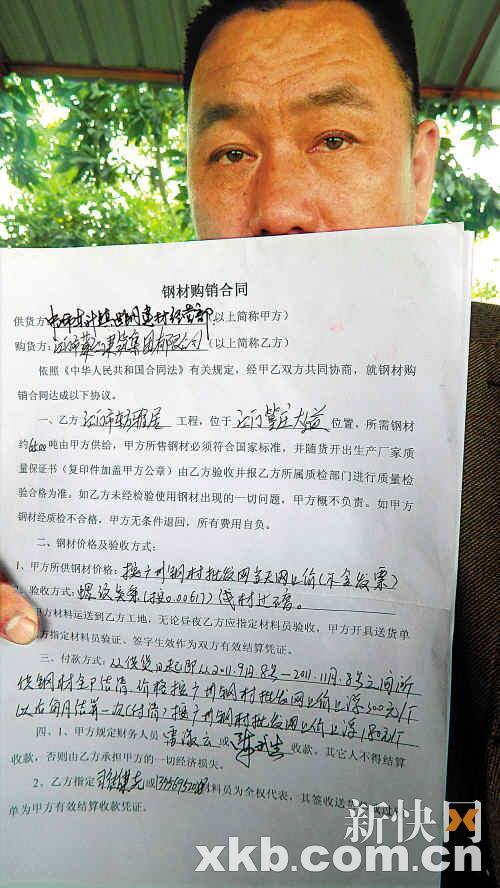 钢材购销合同
供货方：（以上简称甲方）
购货方：有限公司（以上简称乙方）
依照《中华人民共和国合同法》有关规定，经甲乙双方共同协商，就钢材购
销合同达成以下协议。
一、乙方 工程，位于 位置，所需钢材
约 吨由甲方供给，甲方所售钢材必须符合国家标准，并随货开出生产厂家质
量保证书（复印件加盖甲方公章）由乙方验收并报乙方所属质检部门进行质量检
验合格为准。如乙方未经检验使用钢材出现的一切问题，甲方概不负责。如甲方
钢材经质检不合格，甲方无条件退回，所有费用自负。
二、钢材价格及验收方式：
1、甲方所供钢材价格：按广州钢材批发网当天网上价（不含发票）
验收方式：（按0.00617）线材过磅。
甲方材料运送到乙方工地，无论昼夜乙方应指定材料员验收，甲方开具送货单
方指定材料员验证、签字生效作为双方有效结算凭证。
三、付款方式：以供货日起即从2011.9月8号—2011.11月8号之间所
供钢材全部结清，价格按广州钢材批发网网上价上浮300元/T
以后每月结算一次（付清）按广州钢材批发网网上价上浮180元/T
四、1、甲方规定财务人员 或 收款，其它人不得结算
收款，否则由乙方承担甲方的一切经济损失。
2、乙方指定 或 材料员为全权代表，其签收送货
单为甲方有效结算收款凭证。
新快网
xkb.com.cn